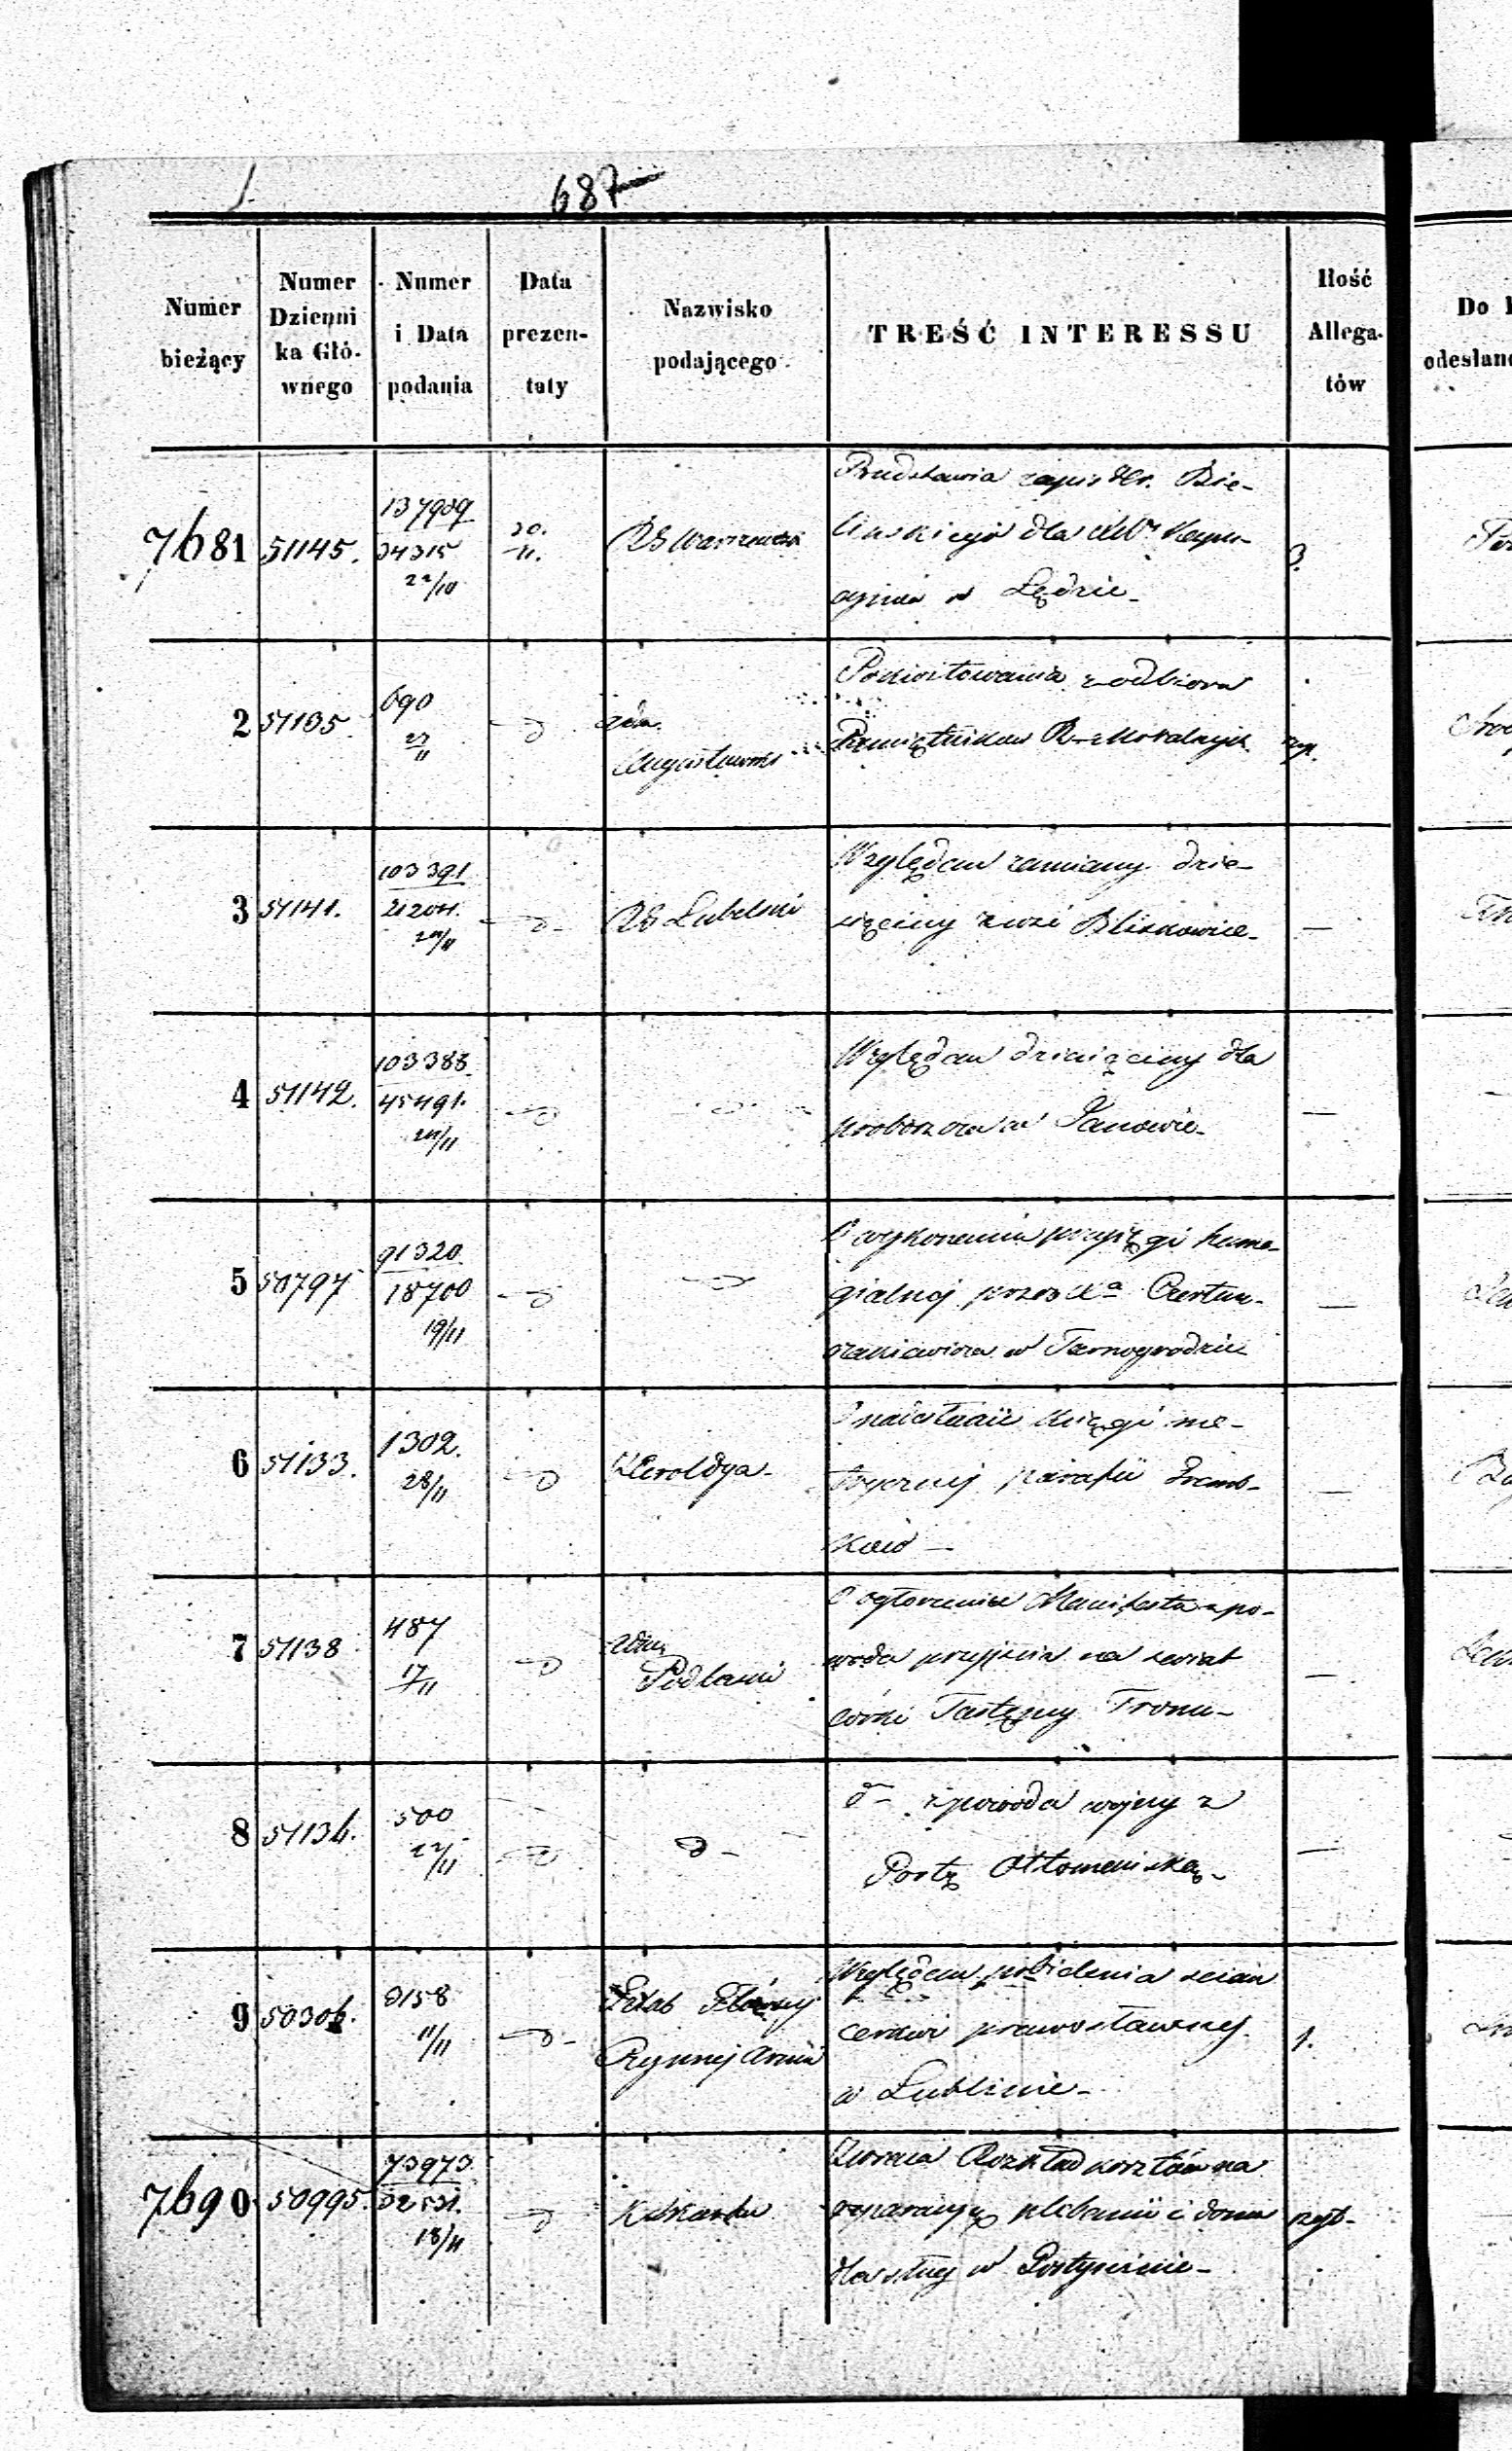 687
Numer bieżący
Numer Dzienni
ka Głó-
wnego
Numer i Data podania
Data prezen-
taty
Nazwisko podającego
TREŚĆ INTERESSU
Ilość Allega-
tów
Do
odesłan
7681 51145. 137909 34315 22/10 30. 11. RG Warszawski 3.
Przedstawia zapis Hr. Bie-
lińskiego dla
w Lędzie
2 51135 690 27/11 Adm. Augustowski
Pokwitowania z odbioru
Pamiętników R. Moralnych
3 51141. 103391 21204. 24/11 RG Lubelski —
Względem zamiany dzie-
sięciny z wsi Bliskowice
4 51142. 103383. 45491. 24/11 —
Względem dziesięciny dla
proboszcza w Janowie
5 50797 91320. 18700 19/11 —
O wykonaniu przysięgi homa-
gialnej przez Xa
w Tarnogrodzie
6 51133. 1302. 28/11 Heroldya —
O nadesłanie księgi me-
trycznej parafii
7 51138 487 17/11 Adm. Podlaski —
O ogłoszeniu Manifestu z po-
wodu przyjścia na świat
córki Następcy Tronu
8 51136. 500 22/11 d- —
d- z powodu wojny z
Portą Ottomańską
9 50306. 3158 11/11 Sztab Główny Czynnej Armii 1.
Względem pobielenia ścian
cerkwi prawosławnej
w Lublinie
7690 50995. 73973. 18/11
Zwraca Rozkład kosztów na
reparacyę plebanii i domu
dla sług w Postyninie